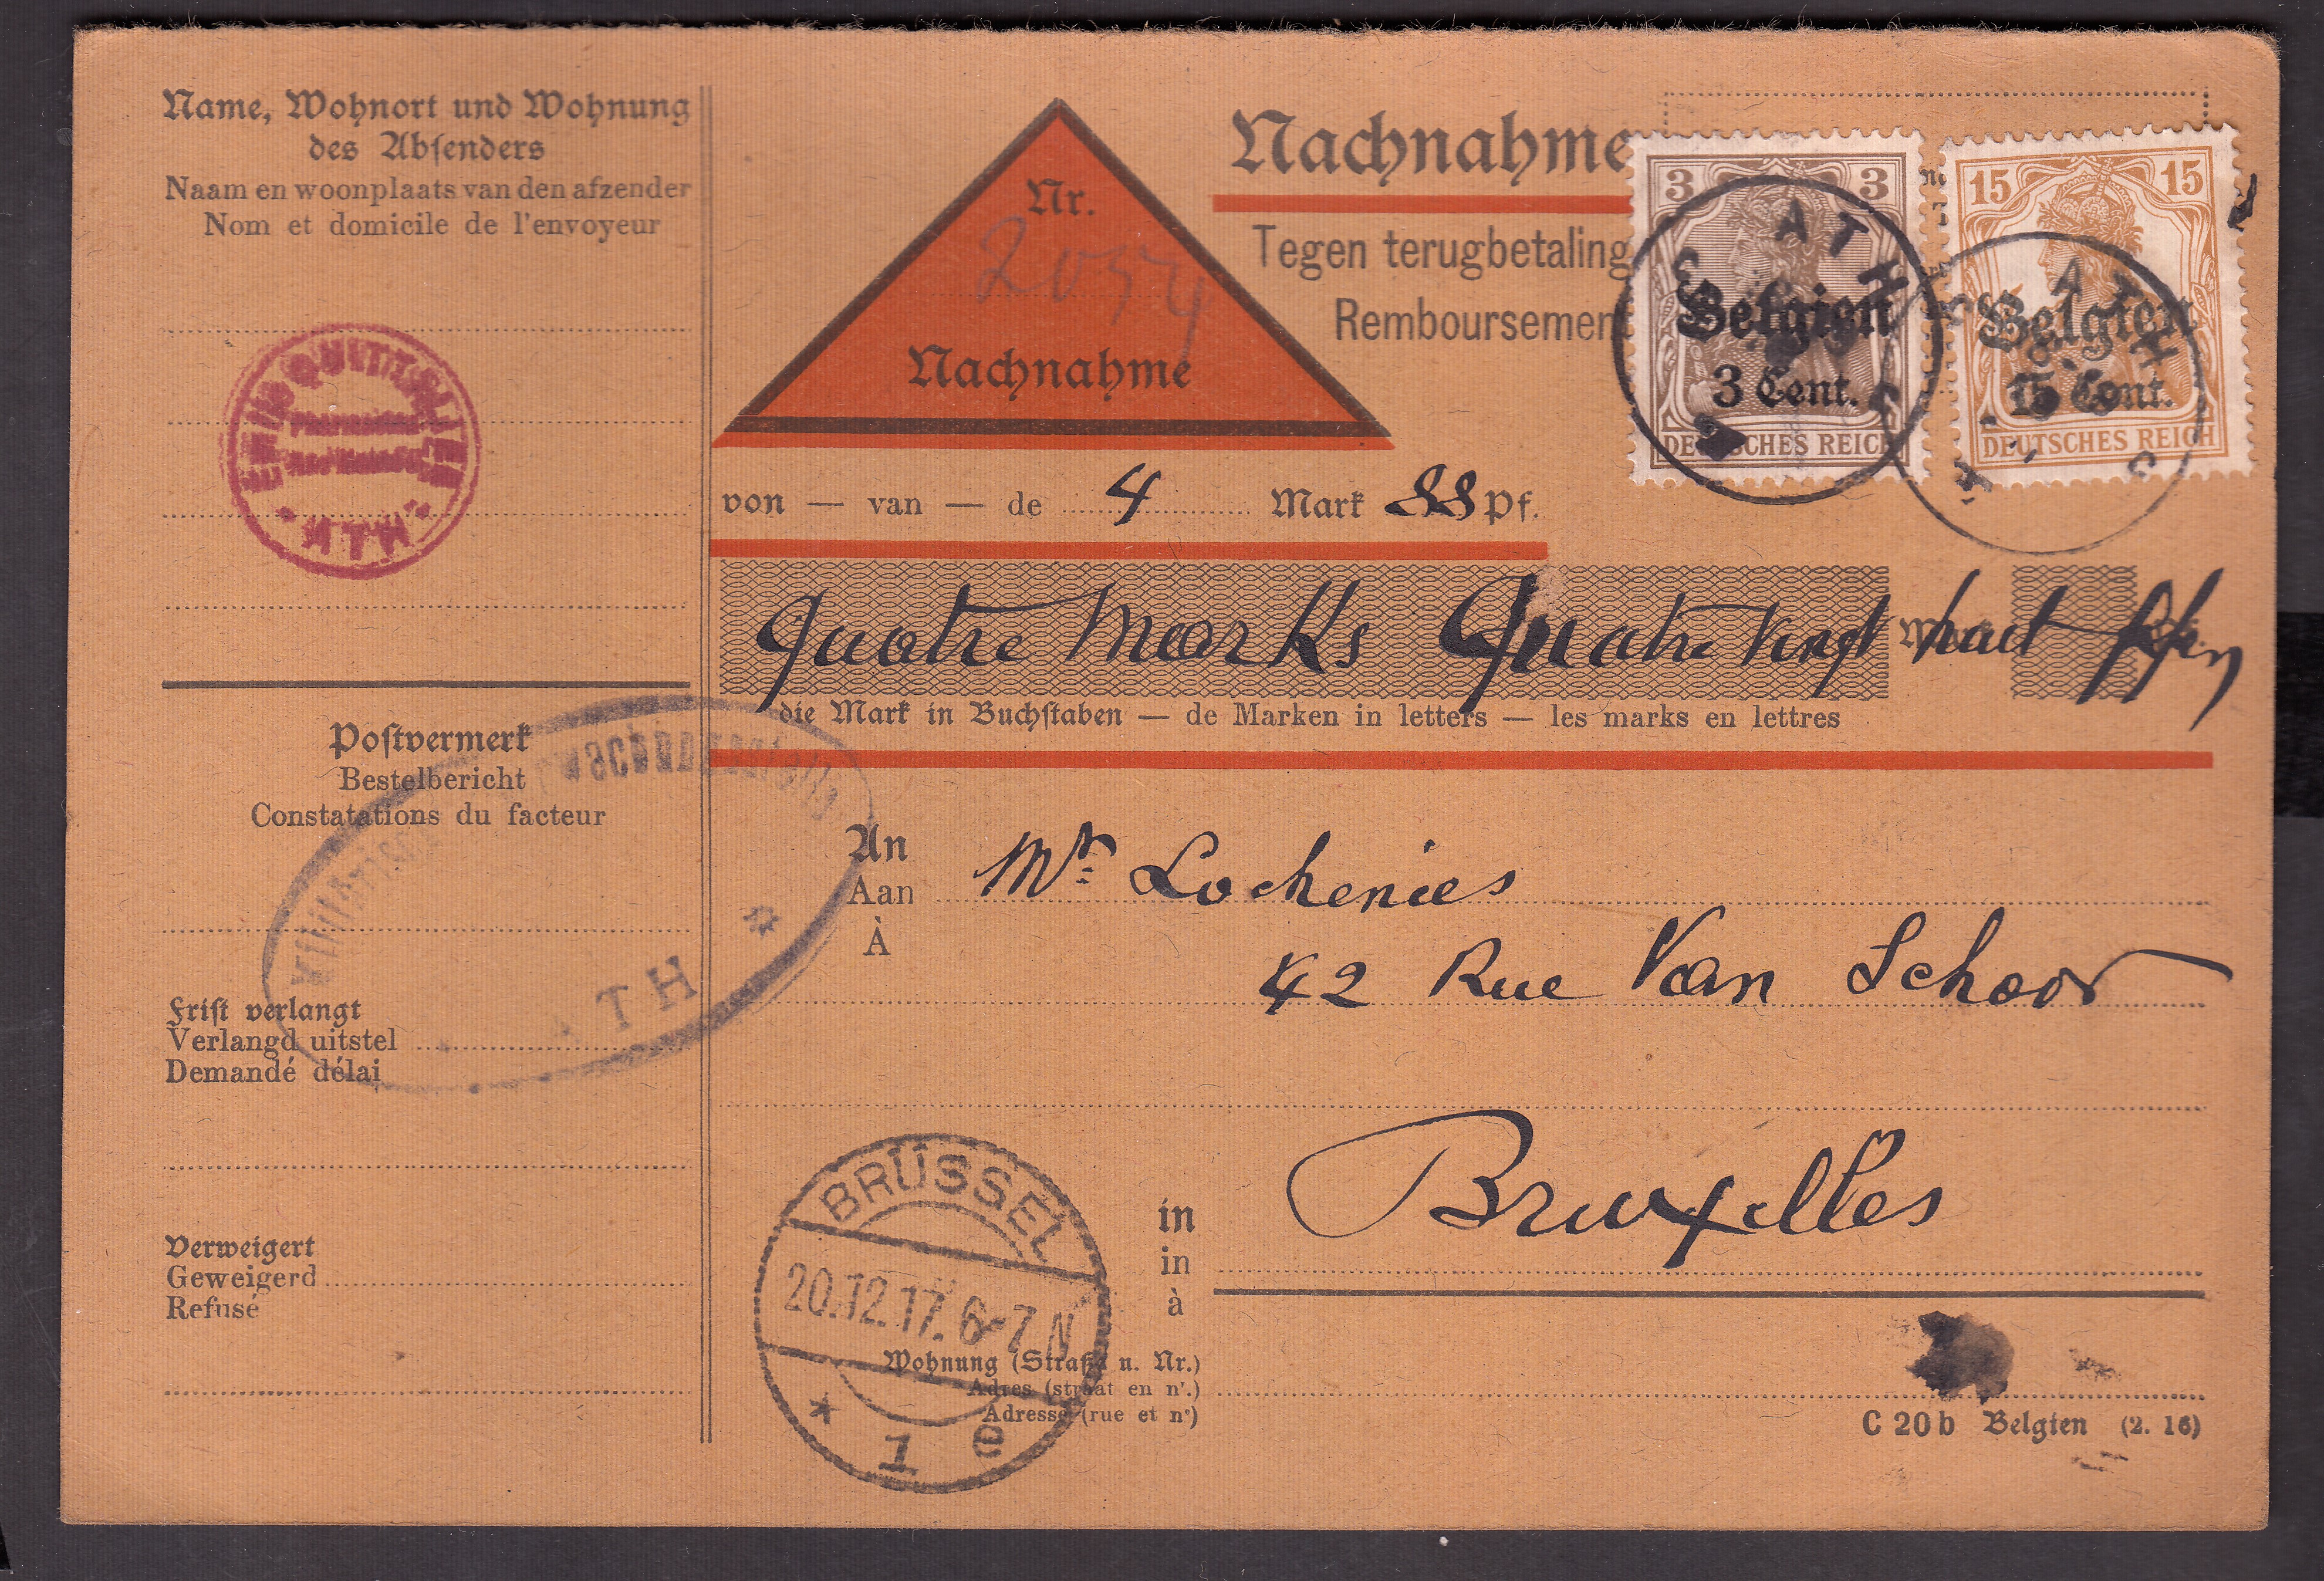 Name, Wohnort und Wohnung
des Absenders
Naam en woonplaats van den afzender
Nom et domicile de l'envoyeur
ATH
Postvermerk
Bestelbericht
Constatations du facteur
ATH
Frist verlangt
Verlangd uitstel
Demandé délai
Verweigert
Geweigerd
Refusé
Nr.
2054
Nachnahme
Nachnahme
Tegen terugbetaling
Remboursemen
3 3
Belgien
3 Cent.
DEUTSCHES REICH
ATH
15 15
Belgien
15 Cent.
DEUTSCHES REICH
ATH
von — van — de 4 Mark 88 Pf.
Quatre Marks Quatre Vingt huit
die Mark in Buchstaben — de Marken in letters — les marks en lettres
An
Aan
À
Mr Lochenies
42 Rue Van Schoor
in
in
à
Bruxelles
BRÜSSEL
20.12.17. 6-7 N
* 1 e
Wohnung (Straße u. Nr.)
Adres (straat en nr.)
Adresse (rue et nº)
C 20 b Belgien (2. 16)